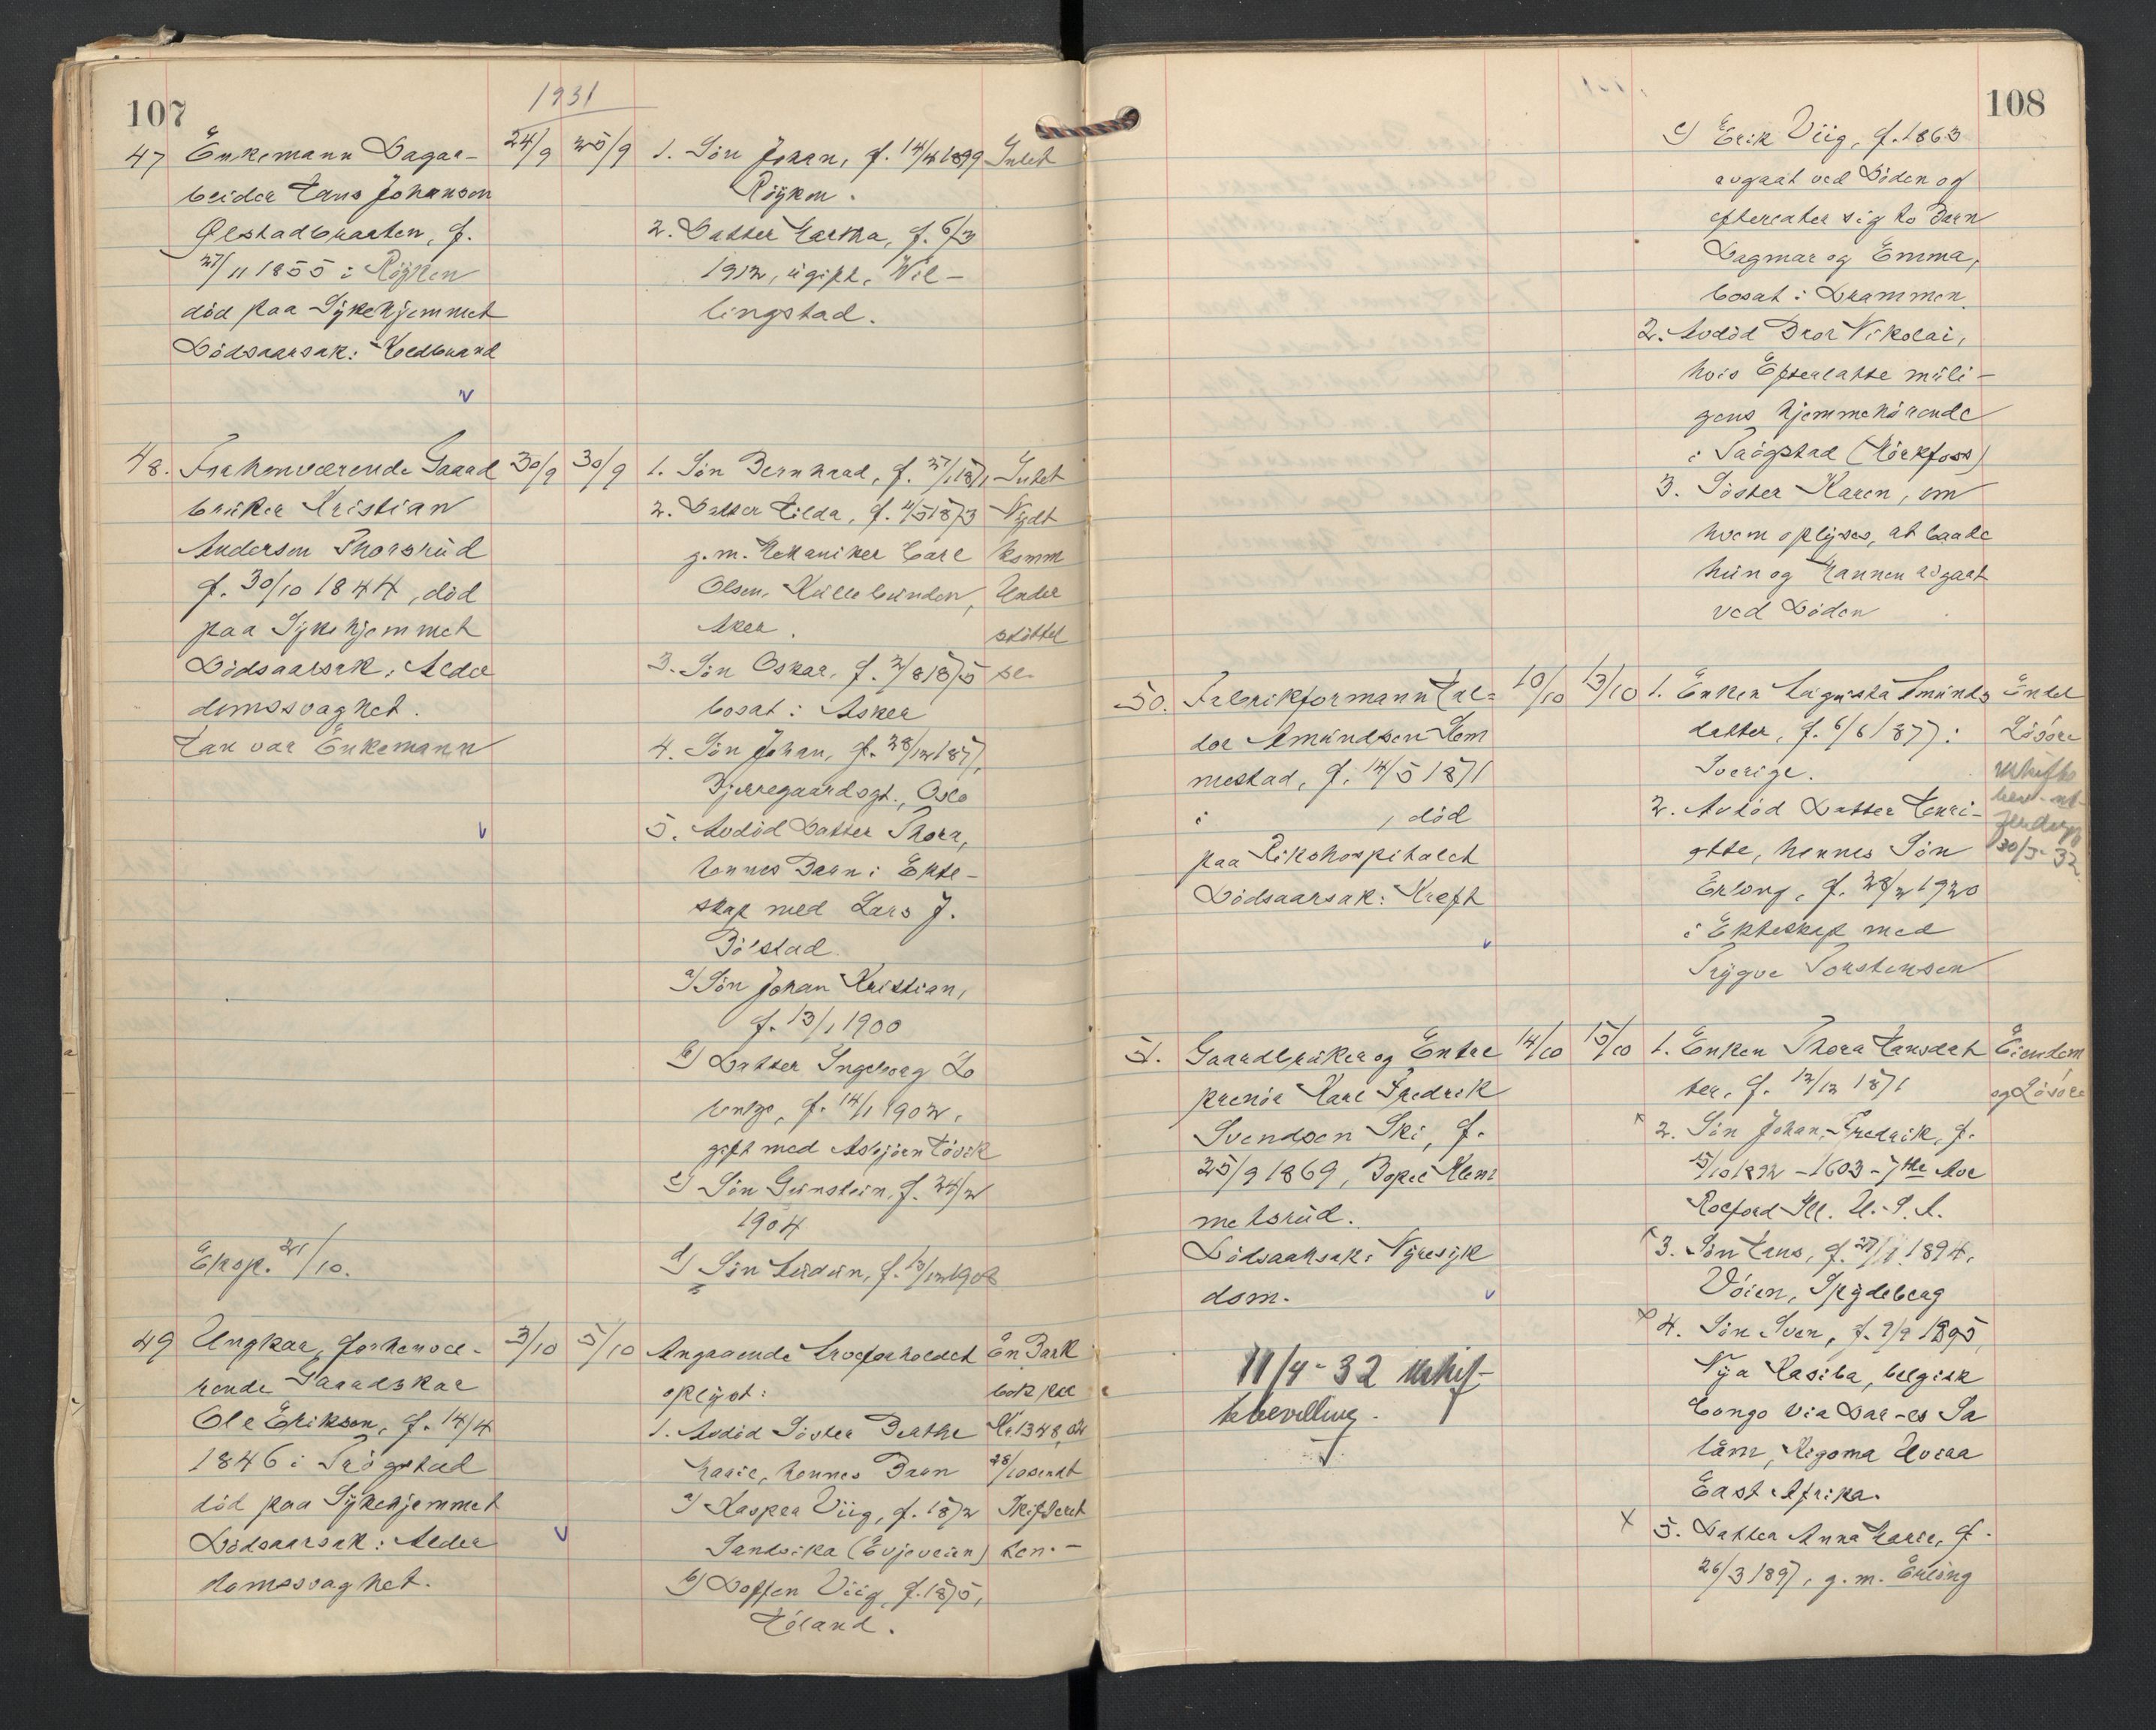 107
1931
47 Enkemann Dagar-
beider Hans Johansen
Ølstadbraaten, f.
27/11 1855 i Røyken
død paa Sykehjemmet
Dødsaarsak: Koldbrand
24/9 25/9
1. Søn Johan, f. 14/4 1899
Røyken.
2. Datter Martha, f. 6/3
1912, ugift, Wil-
lingstad.
Intet
48. Forhenværende Gaard
bruker Kristian
Andersen Thorsrud
f. 30/10 1844, død
paa Sykehjemmet
Dødsaarsak: Alder
domssvaghet.
Han var Enkemann
Eksp. 21/10.
30/9 30/9
1. Søn Bernhard, f. 27/1 1871
2. Datter Hilda, f. 4/5 1873
g. m. Mekaniker Carl
Olsen, Kullebunden,
Aker.
3. Søn Oskar, f. 2/8 1875
bosat i Asker
4. Søn Johan, f. 28/12 187
Bjerregaardsgt., Oslo
5. Avdød Datter Thora,
hennes Barn i Ekte-
skap med Lars J.
Bølstad.
a) Søn Johan Kristian,
f. 13/1 1900
b) Datter Ingeborg Lo
f. 14/1 1902,
gift med Asbjørn Høvik
c) Søn Gunstein, f. 24/2
1904
d) Søn Audun, f. 13/12 1908
Intet
Nydt
komm
Under
støttel
se.
49 Ungkar, forhenvæ-
rende Gaardskar
Ole Eriksen, f. 14/4
1846 i Trøgstad
død paa Sykehjemmet
Dødsaarsak: Alder
domssvaghet.
3/10 5/10
Angaaende Arveforholdet
oplyst:
1. Avdød Søster Berthe
Marie, hennes Barn
a) Kasper Viig, f. 1872
Sandvika (Evjeveien)
b) Doffen Viig, f. 1875,
Høland.
En Bank
bok paa
Kr 1348,02
28/10 sendt
Skifteret
ten. -
108
c) Erik Viig, f. 1863
avgaat ved Døden og
efterlater sig to Barn
Dagmar og Emma,
bosat i Drammen
2. Avdød Bror Nikolai,
hvis Efterlatte muli-
gens hjemmehørende
i Trøgstad (Mørkfoss)
3. Søster Karen, om
hvem oplyses, at baade
hun og Mannen avgaat
ved Døden
50. Fabrikformann Hal-
dor Amundsen Hem
mestad, f. 14/5 1871
i , død
paa Rikshospitalet
Dødsaarsak: Kreft
10/10 13/10
1. Enken Augusta Amunds
datter, f. 6/6 1877 i
Sverige.
2. Avdød Datter Henri-
ette, hennes Søn
Erling, f. 28/2 1920
i Ekteskap med
Trygve Torstensen
Endel
Løsøre
Uskifte
bev. ut-
30/3-32.
51. Gaardbruker og Entre
prenør Karl Fredrik
Svendsen Ski, f.
25/9 1869, Bopel Klem
metsrud.
Dødsaarsak: Nyresyk
dom.
11/4-32 uskif-
tebevilling.
14/10 15/10
1. Enken Thora Hansdat
ter, f. 12/12 1871
x 2. Søn Johan Fredrik, f.
15/10 1892 - 1603 - 7the Ave
Rocford Ill. U. S. A.
x 3. Søn Hans, f. 27/1 1894,
Vøien, Spydeberg
x 4. Søn Sven, f. 9/9 1895
Nya Kasiba, belgisk
Congo via Dar-es Sa
lam, Kigoma Uvira
East Afrika.
x 5. Datter Anna Marie, f.
26/3 1897, g. m. Erling
Eiendom
og Løsøre